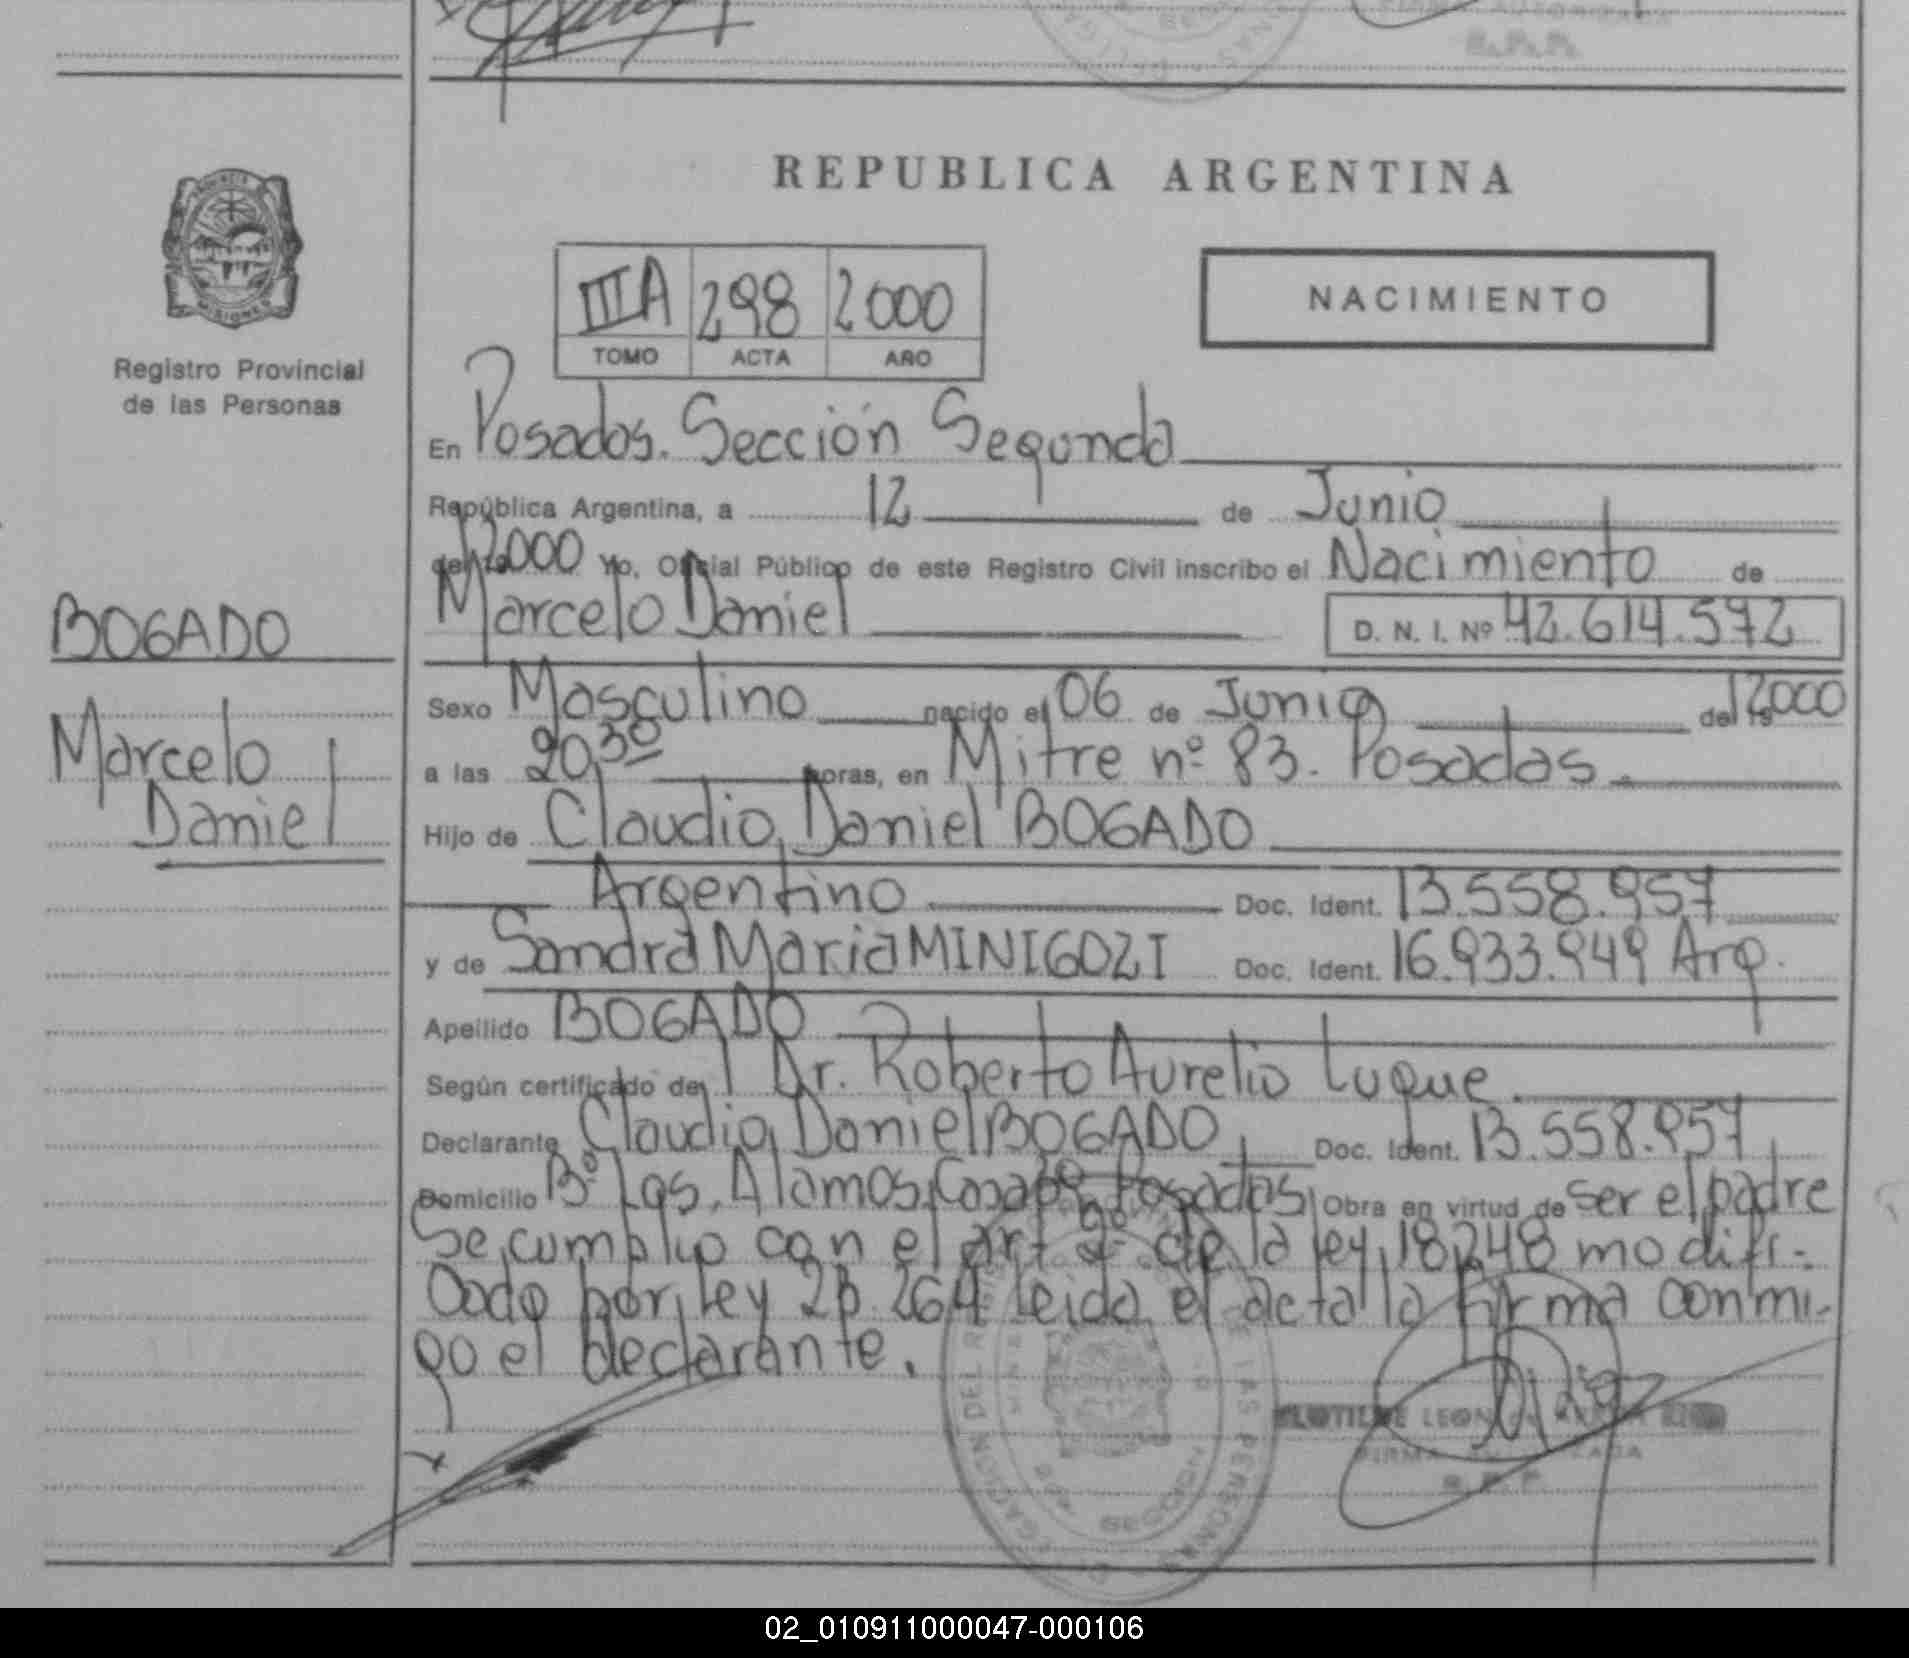 REPUBLICA ARGENTINA
IIIA 298 2000
TOMO ACTA AÑO
NACIMIENTO
Registro Provincial
de las Personas
En Posadas. Sección Segunda
República Argentina, a 12 de Junio
del 2000 Yo, Oficial Público de este Registro Civil inscribo el Nacimiento de
Marcelo Daniel D. N. I. Nº 42.614.572
BOGADO
Marcelo
Daniel
Sexo Masculino nacido el 06 de Junio del 2000
a las 20,30 horas, en Mitre nº 83. Posadas.
Hijo de Claudio Daniel BOGADO
Argentino Doc. Ident. 13.558.957
y de Sandra Maria MINIGOZI Doc. Ident. 16.933.949 Arg.
Apellido BOGADO
Según certificado del Dr. Roberto Aurelio Luque.
Declarante Claudio Daniel BOGADO Doc. Ident. 13.558.957
Domicilio Bº Los Alamos, Casa Posadas Obra en virtud de ser el padre
Se cumplio con el art de la ley 18248 modifi-
cado por ley 264 leida el acta la firma conmi-
go el declarante.
LEON
FIRMA
R. P. P.
SECCION
02_010911000047-000106